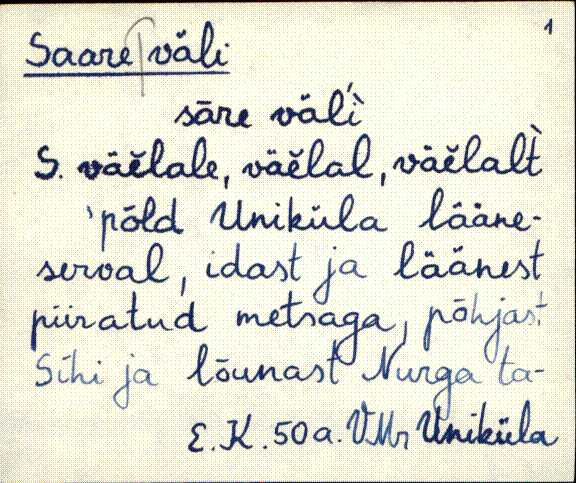 Saare väli
1
sāre väl̀'i
S. väĕlale, väĕlal, väĕlalt̀
'põld Uniküla lääne-
serval, idast ja läänest
piiratud metsaga, põhjast
Sihi ja lõunast Nurga ta-
E.K. 50a. VMr Uniküla